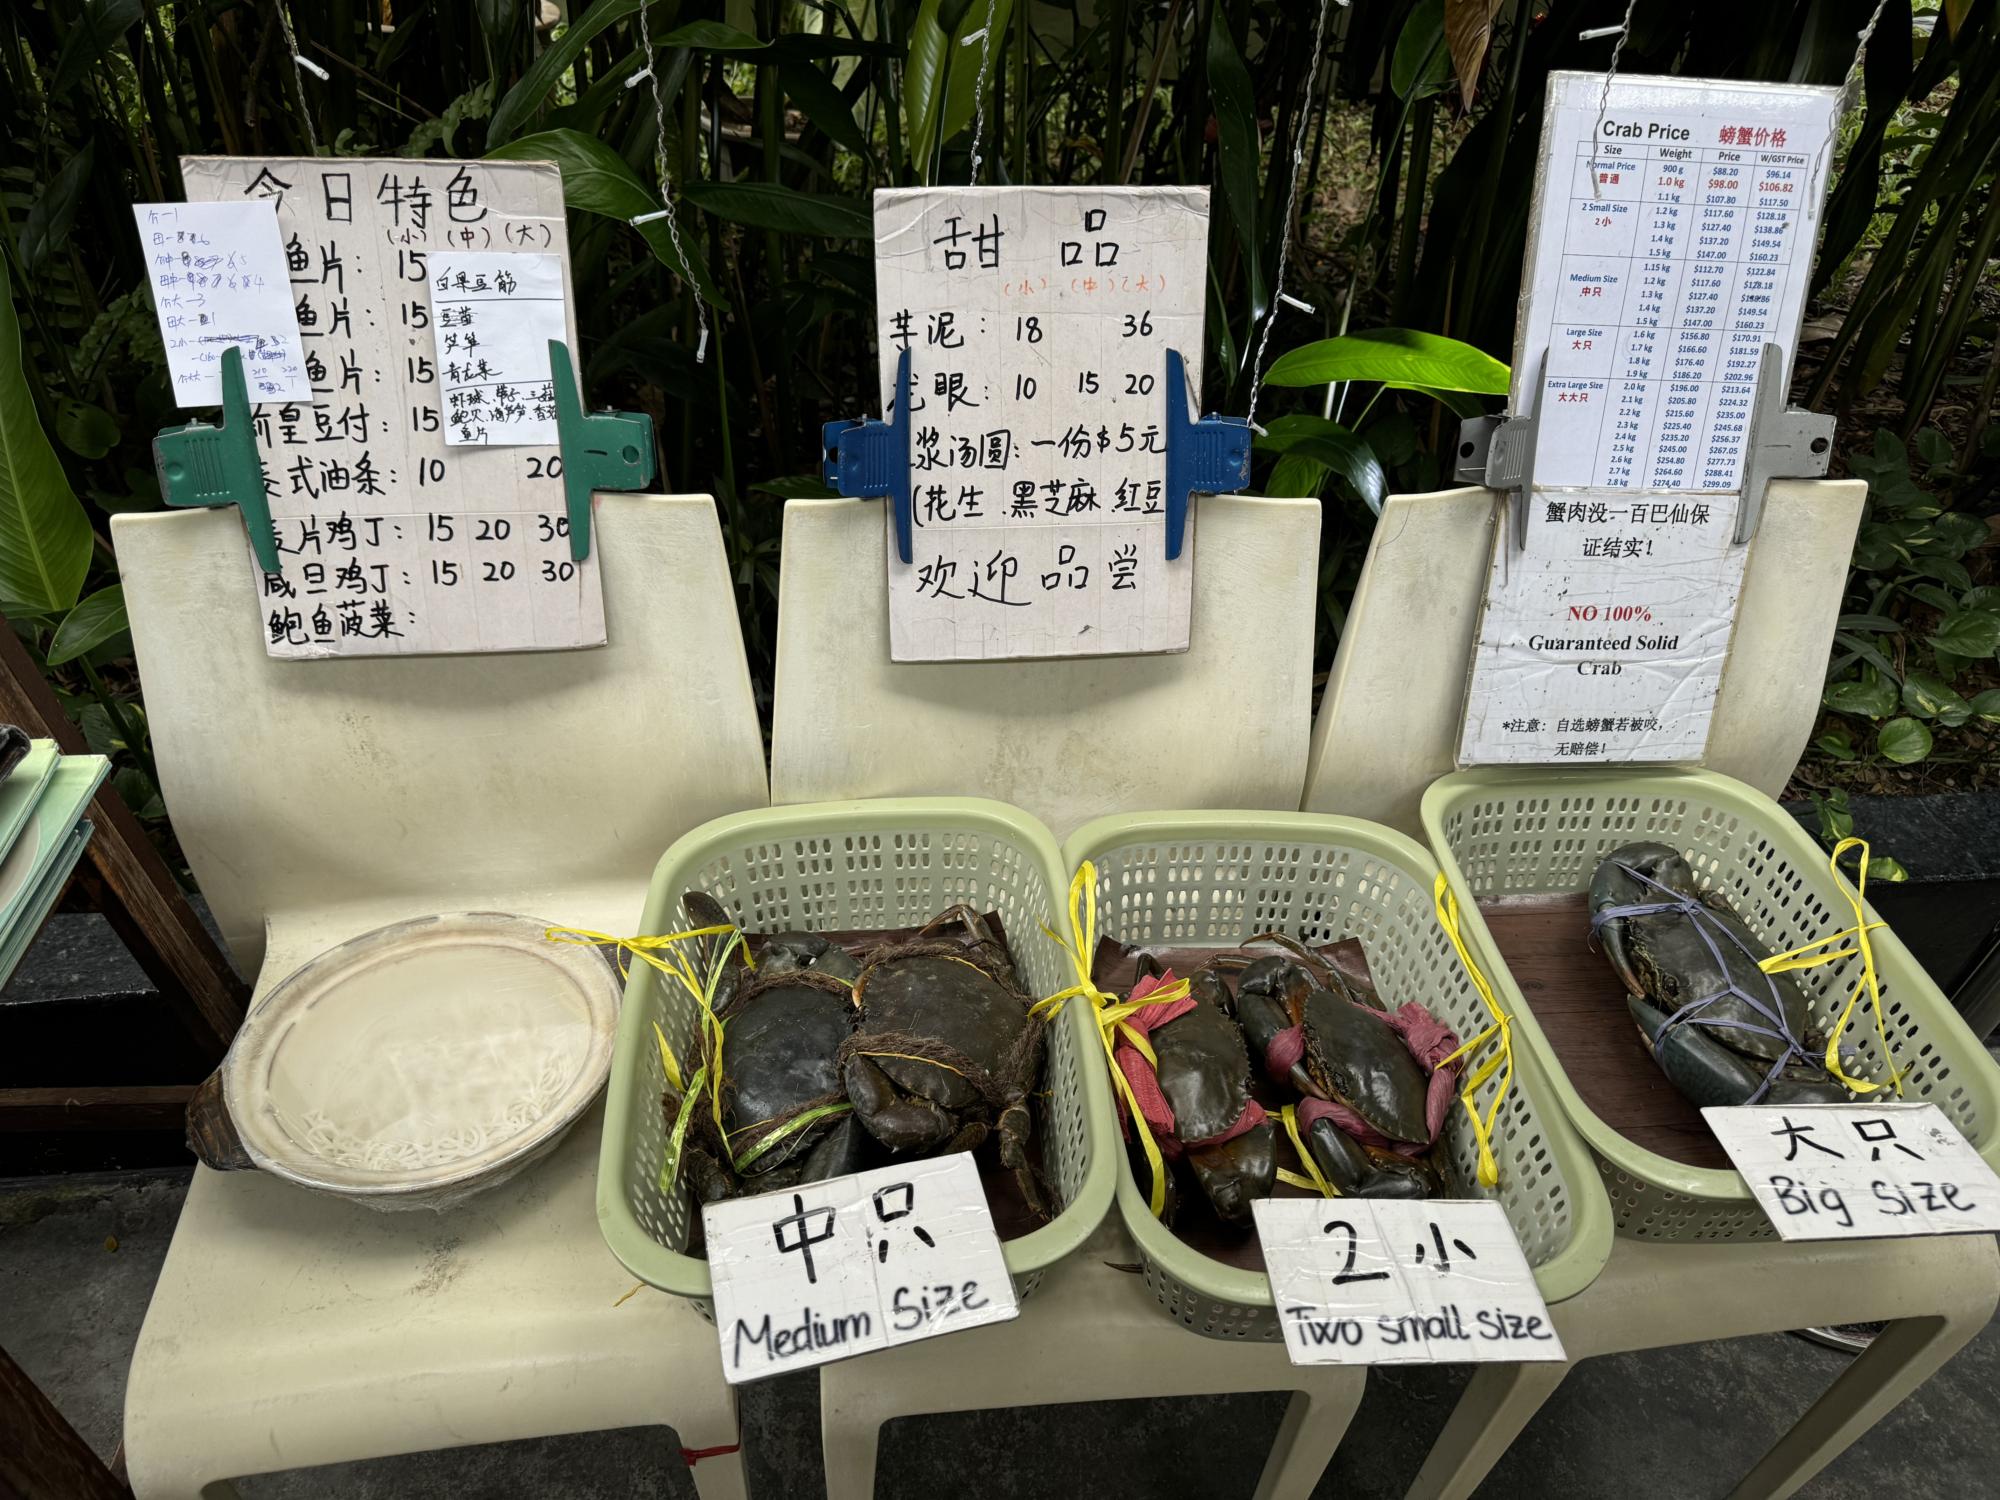 今日特色
(小) (中) (大)
鱼片: 15
鱼片: 15
鱼片: 15
皇豆付: 15
式油条: 10 20
片鸡丁: 15 20 30
咸旦鸡丁: 15 20 30
鲍鱼菠菜:
白果豆筋
豆苗
芦笋
甜品
(小) (中) (大)
芋泥: 18 36
龙眼: 10 15 20
浆汤圆: 一份$5元
(花生.黑芝麻.红豆
欢迎品尝
Crab Price 螃蟹价格
Size Weight Price W/GST Price
Normal Price 900 g $88.20 $96.14
普通 1.0 kg $98.00 $106.82
1.1 kg $107.80 $117.50
2 Small Size 1.2 kg $117.60 $128.18
2 小 1.3 kg $127.40 $138.86
1.4 kg $137.20 $149.54
1.5 kg $147.00 $160.23
1.15 kg $112.70 $122.84
Medium Size 1.2 kg $117.60 $128.18
中只 1.3 kg $127.40 $138.86
1.4 kg $137.20 $149.54
1.5 kg $147.00 $160.23
Large Size 1.6 kg $156.80 $170.91
大只 1.7 kg $166.60 $181.59
1.8 kg $176.40 $192.27
1.9 kg $186.20 $202.96
Extra Large Size 2.0 kg $196.00 $213.64
大大只 2.1 kg $205.80 $224.32
2.2 kg $215.60 $235.00
2.3 kg $225.40 $245.68
2.4 kg $235.20 $256.37
2.5 kg $245.00 $267.05
2.6 kg $254.80 $277.73
2.7 kg $264.60 $288.41
2.8 kg $274.40 $299.09
蟹肉没一百巴仙保
证结实!
NO 100%
Guaranteed Solid
Crab
*注意: 自选螃蟹若被咬,
无赔偿!
中只
Medium Size
2 小
Two small size
大只
Big size